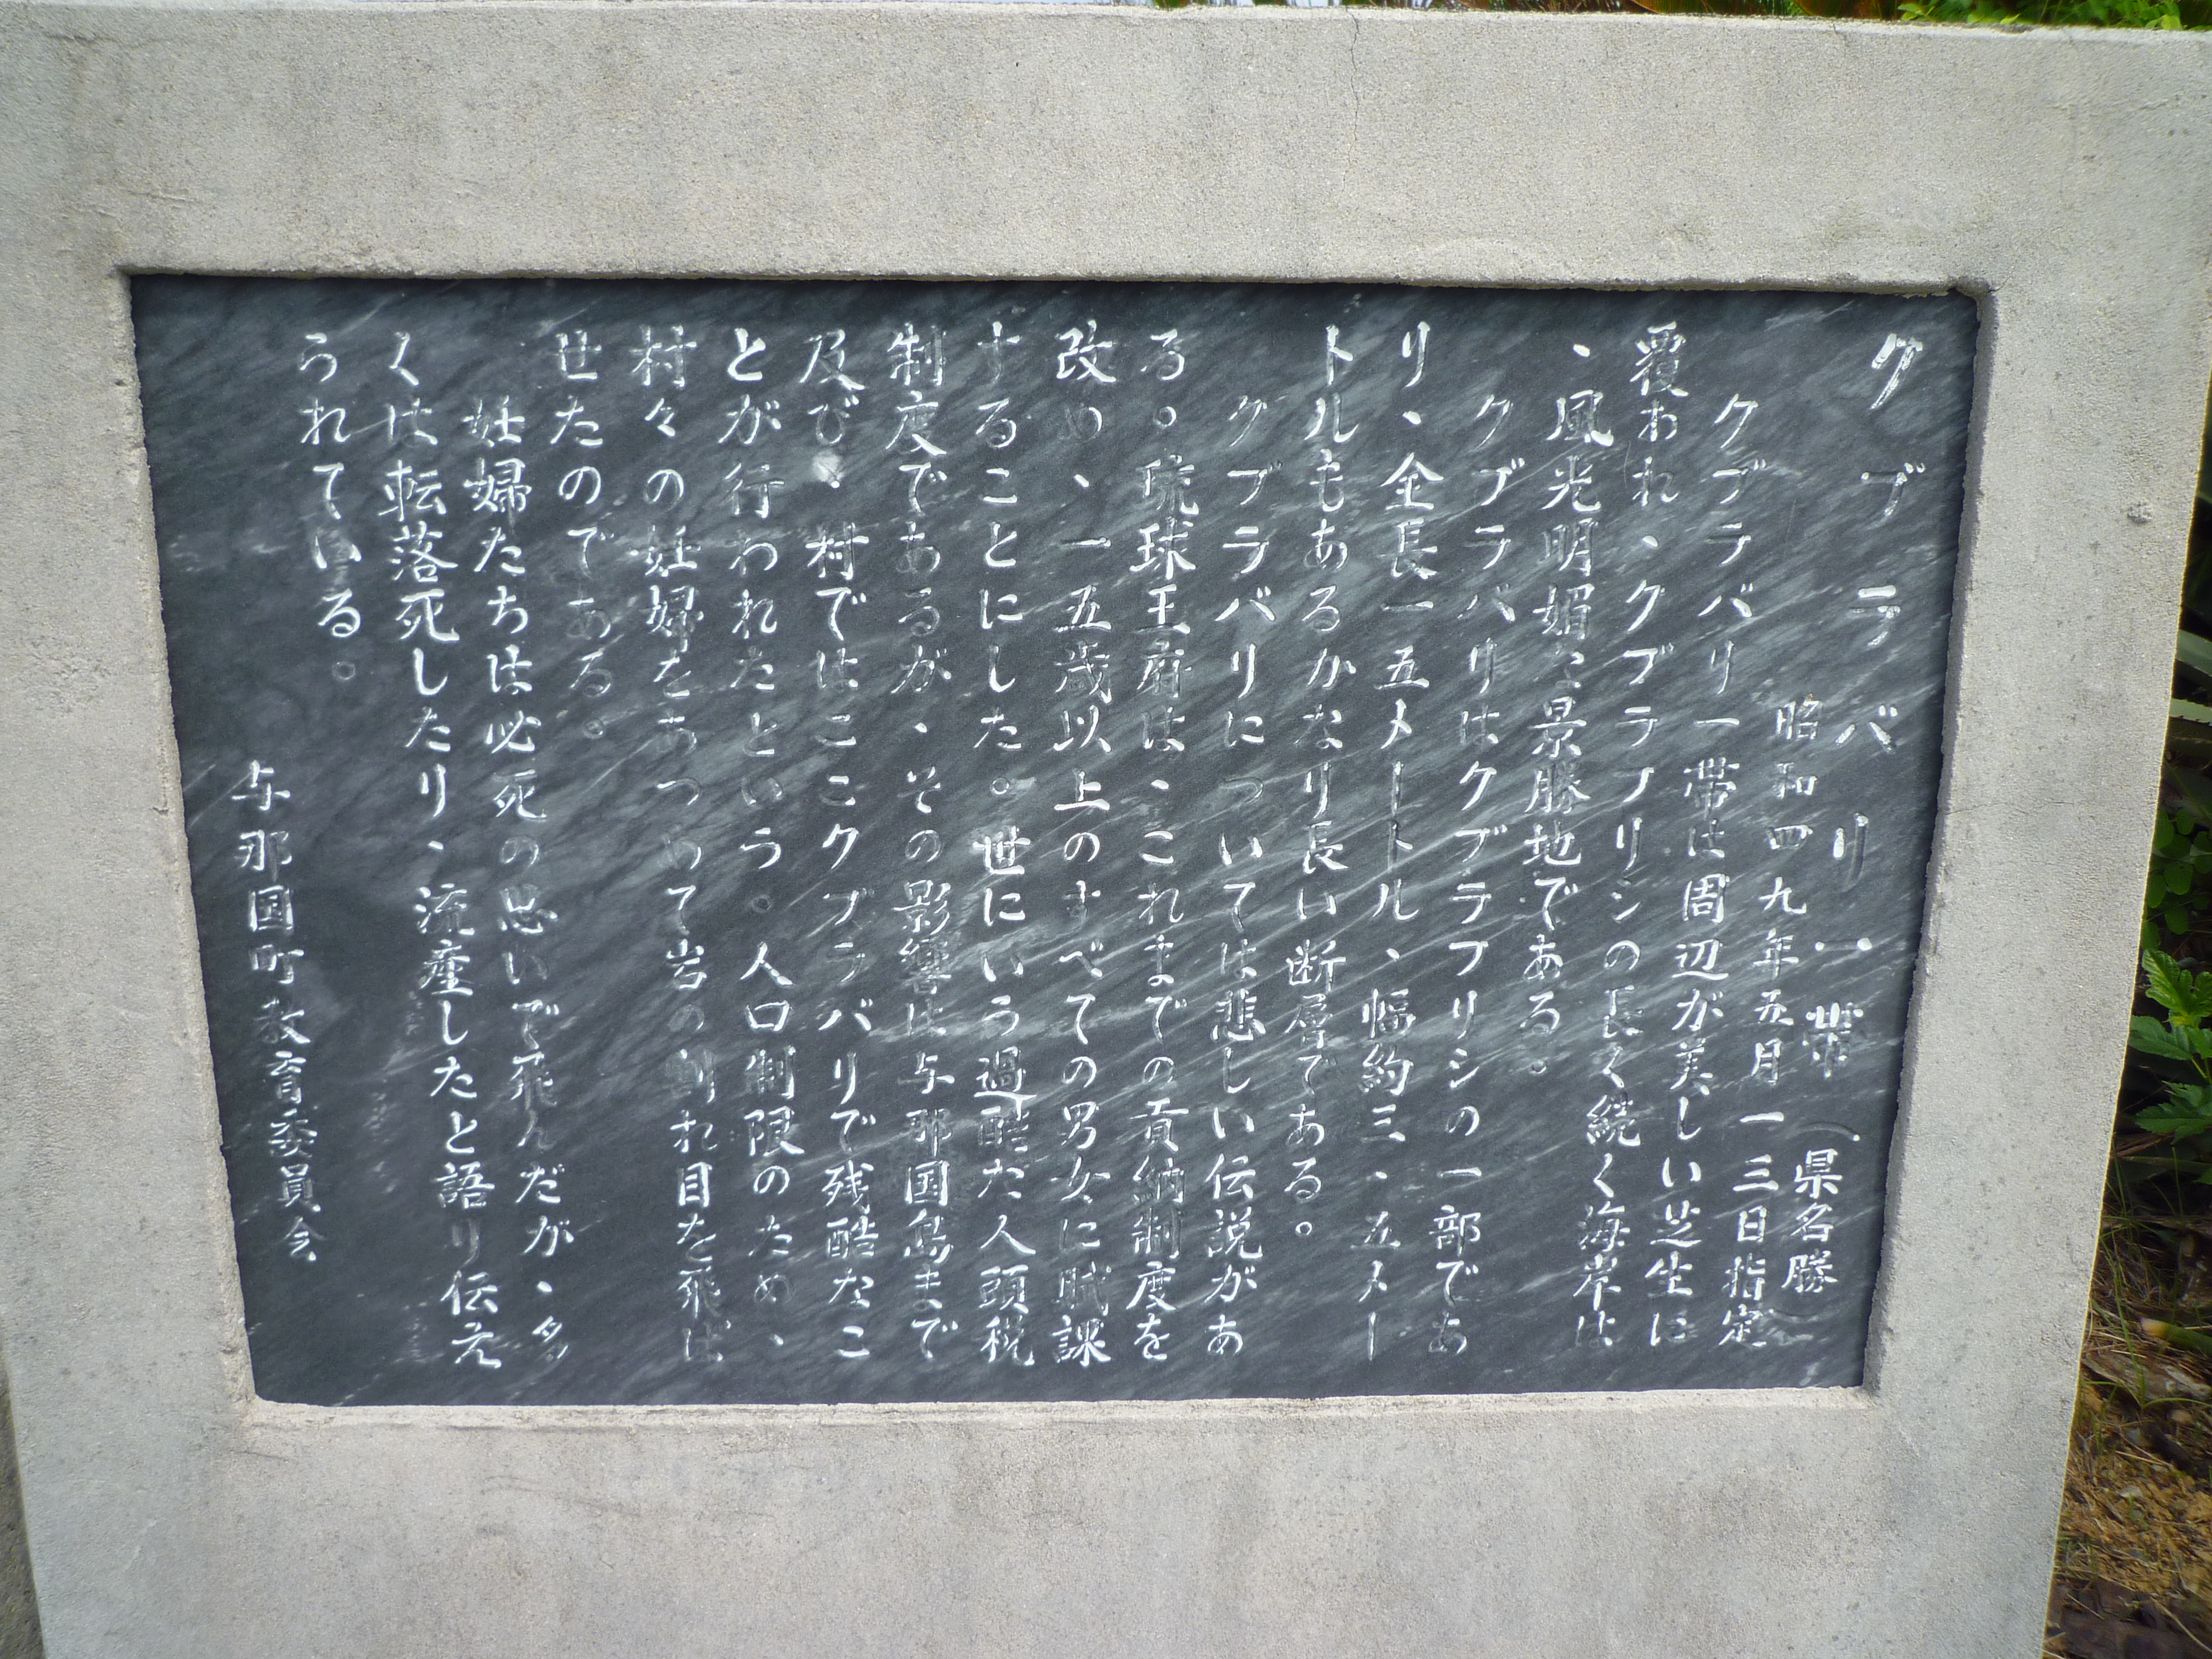 クブラバリ一帯(県名勝)
昭和四九年五月一三日指定
クブラバリ一帯は周辺が美しい芝生に
覆われ、クブラフリシの長く続く海岸は
、風光明媚な景勝地である。
クブラバリはクブラフリシの一部であ
り、全長一五メートル、幅約三・五メー
トルもあるかなり長い断層である。
クブラバリについては悲しい伝説があ
る。琉球王府は、これまでの貢納制度を
改め、一五歳以上のすべての男女に賦課
することにした。世にいう過酷た人頭税
制度であるが、その影響は与那国島まで
及び、村ではここクブラバリで残酷なこ
とが行われたという。人口制限のため、
村々の妊婦をあつめて岩の割れ目を飛ば
せたのである。
妊婦たちは必死の思いで飛んだが、多
くは転落死したり、流産したと語り伝え
られている。
与那国町教育委員会